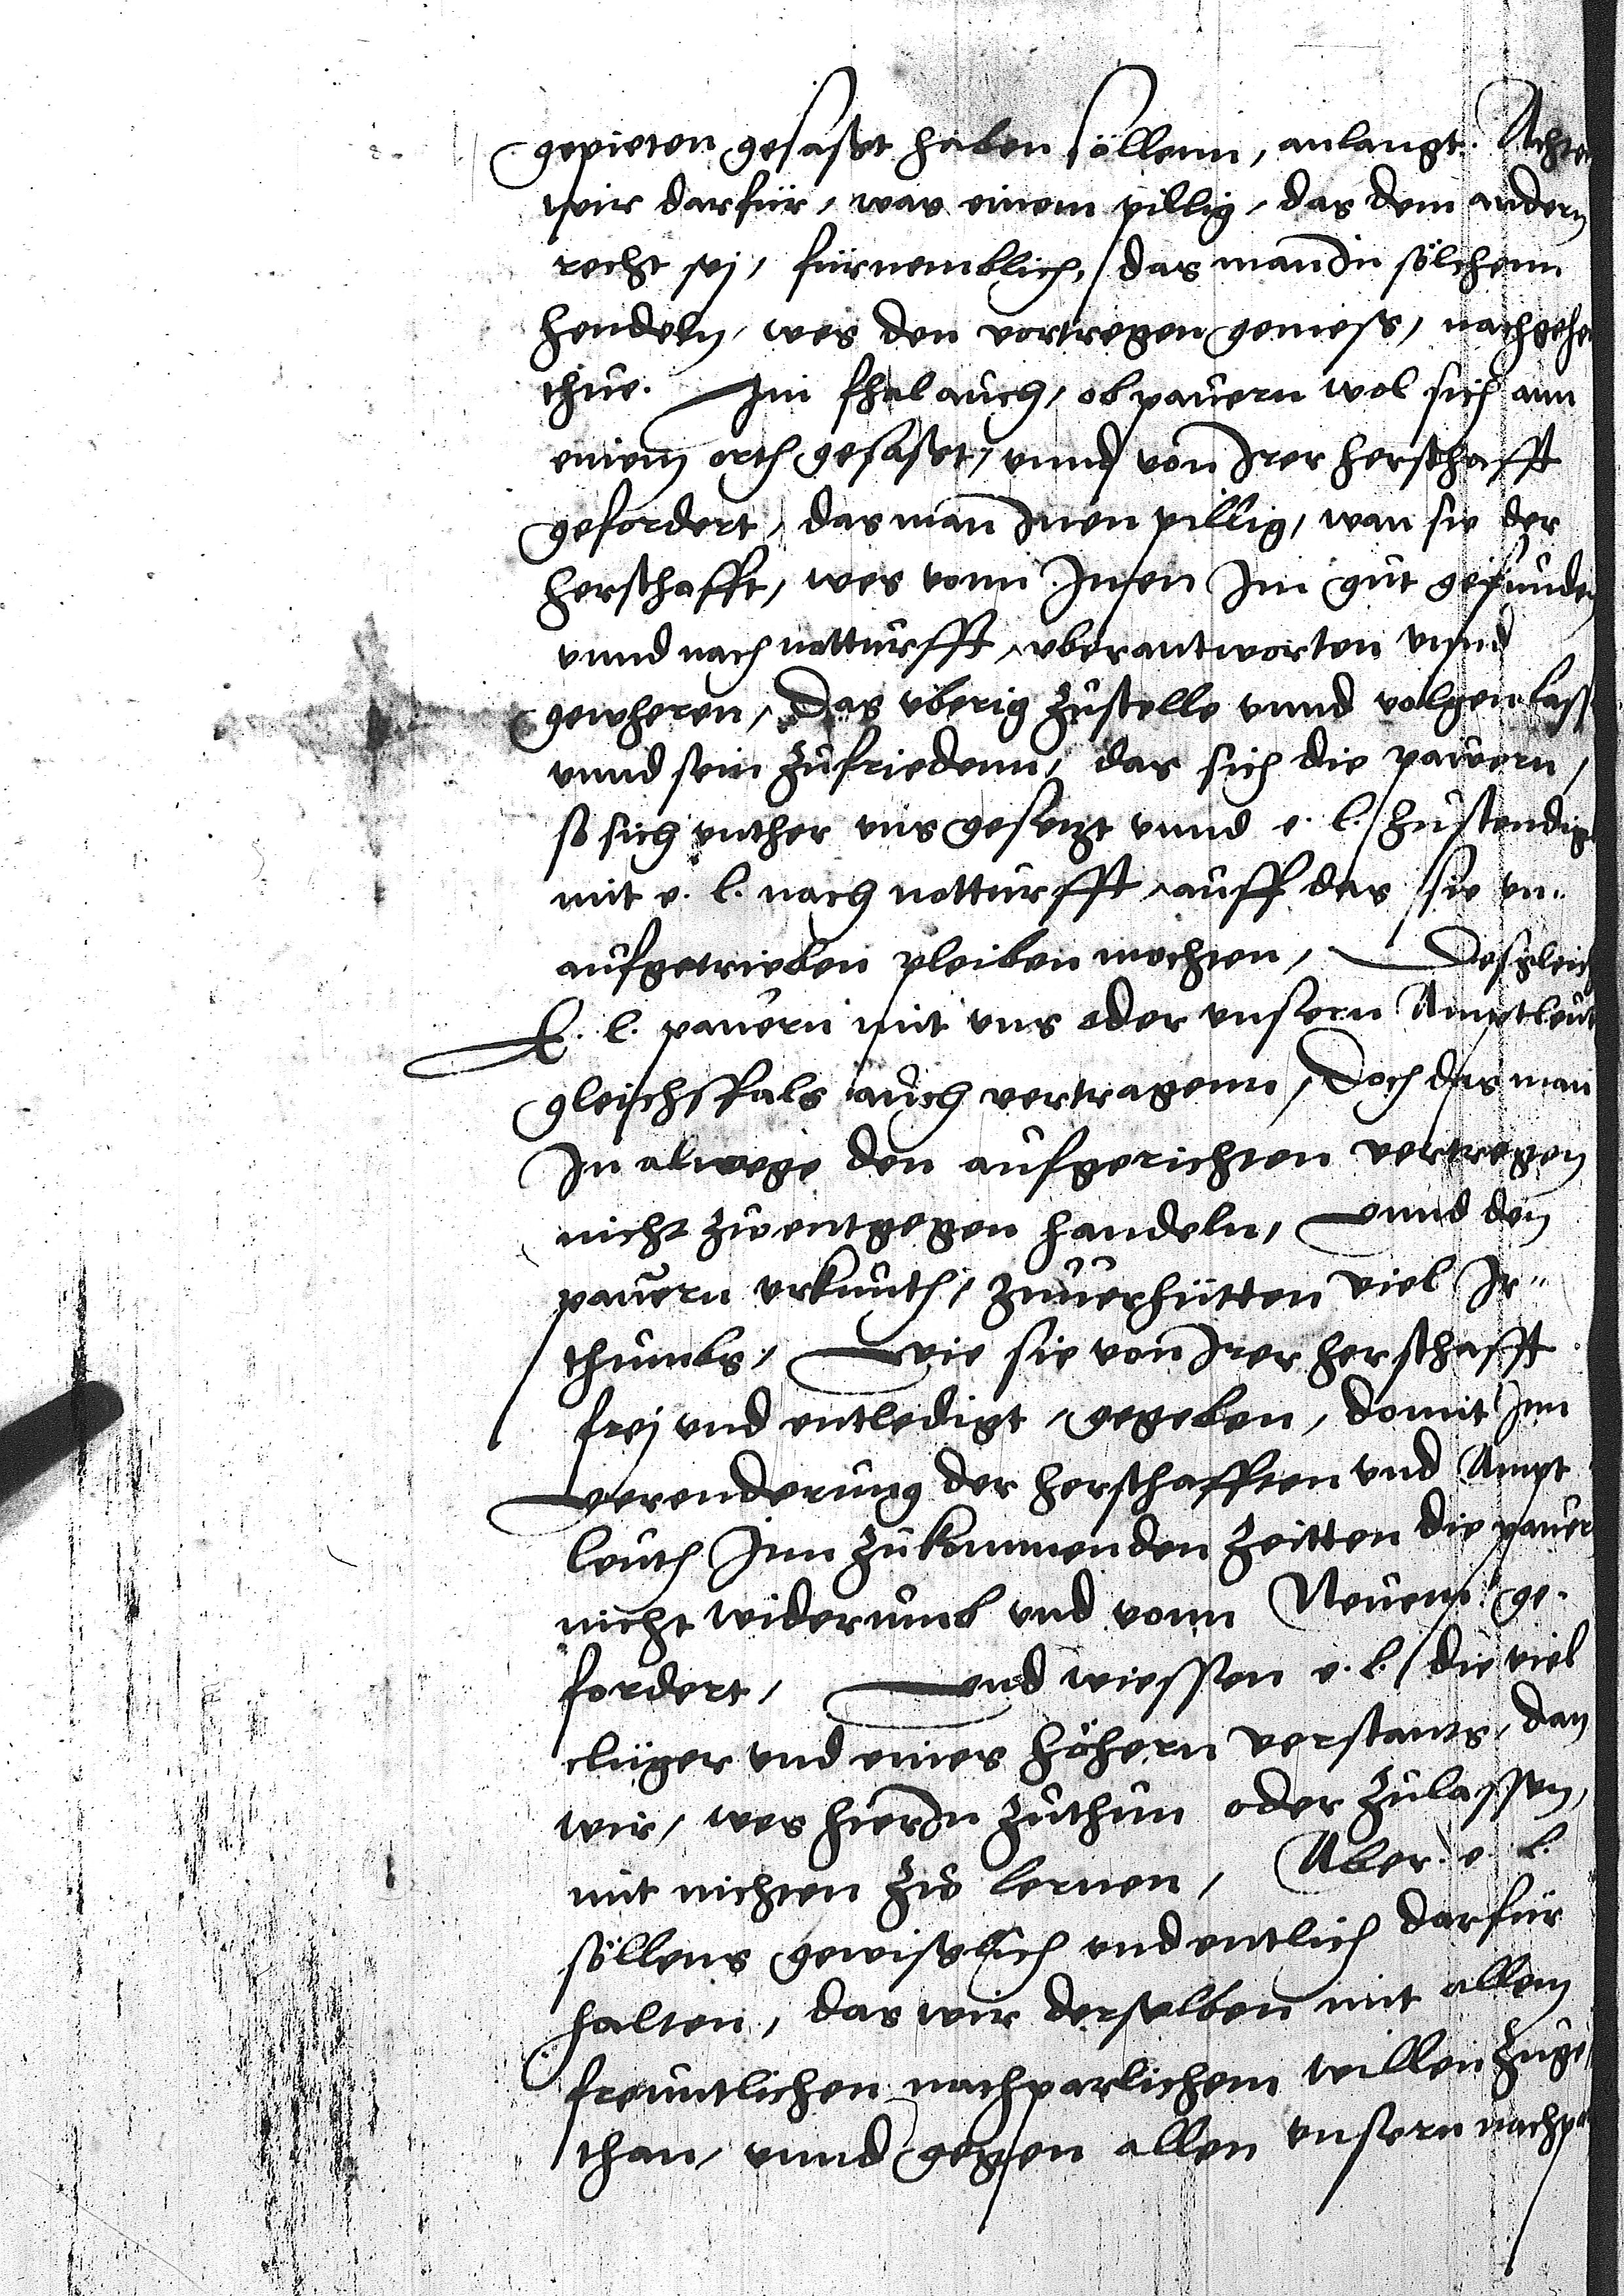 gepieten gesast haben söllenn, anlangt. Achten
wir darfür, was einem pillig, das dem andern
recht sej, fürnemblich, das man In sölchenn
hendeln, wes den vortregen gemess, nachgehen
thue. Im fhal auch, ob pauern wol sich ann
einem orth gesast, vnnd von Irer herschafft
gefordert, das man Inen pillig, wan sie der
herschafft, wes vonn Innen Im gut gefunden
vnnd nach notturfft, vberantworten vnnd
gewheren, Das vberig zustelle vnnd volgen lass
vnnd sein zufriedenn, das sich die pauern,
so sich vnther vns gesetzt vnnd e. l. zustendig
mit e. l. nach notturfft, auff das sie vn-
aufgetrieben pleiben mochten, Desgleich
E. l. pauern mit vns oder vnsern Amptleut
gleichsfals auch vertragenn, Doch das man
In alwege den aufgerichten vertregen
nicht zu entgegen handeln, vnnd den
pauern vrkunth, zuuerhütten viel Ir-
thumbs, wie sie von Irer herschafft
frej vnd entledigt, gegeben, domit Inn
verenderung der herschafften vnd Ampt
leuth Inn zukommenden zeitten die pauer
nicht widerumb vnd vonn Neuem ge-
fordert, vnd wiessen e. l. die viel
clüger vnd eines höhern verstants, dan
wir, wes hierIn zuthun oder zulassen,
mit nichten zu lernen, Aber e. l.
söllens gewislich vnd entlich darfür
halten, das wir derselben mit allem
freuntlichen nachparlichem willen zuge
than, vnnd gegen allen vnsern nachpa